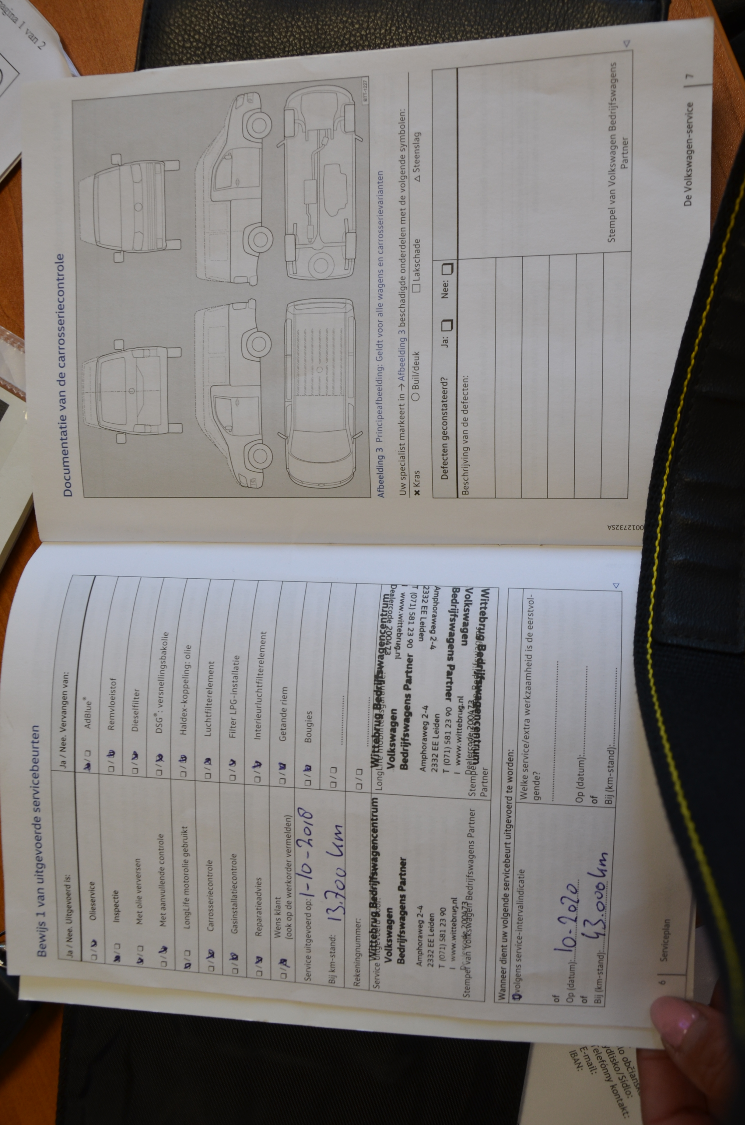 Bewijs 1 van uitgevoerde servicebeurten
Ja / Nee. Uitgevoerd is:
Olieservice
Inspectie
Met olie verversen
Met aanvullende controle
LongLife motorolie gebruikt
Carrosseriecontrole
Gasinstallatiecontrole
Reparatieadvies
Wens klant
(ook op de werkorder vermelden)
Service uitgevoerd op: 1-10-2018
Bij km-stand: 13.700 km
Rekeningnummer:
Wittebrug Bedrijfswagencentrum
Volkswagen
Bedrijfswagens Partner
Amphoraweg 2-4
2332 EE Leiden
T (071) 581 23 90
I www.wittebrug.nl
Stempel van Volkswagen Bedrijfswagens Partner
Ja / Nee. Vervangen van:
AdBlue®
Remvloeistof
Dieselfilter
DSG®: versnellingsbakolie
Haldex-koppeling: olie
Luchtfilterelement
Filter LPG-installatie
Interieurluchtfilterelement
Getande riem
Bougies
Wittebrug Bedrijfswagencentrum
Volkswagen
Bedrijfswagens Partner
Amphoraweg 2-4
2332 EE Leiden
T (071) 581 23 90
I www.wittebrug.nl
Dealercode 200473
Wittebrug Bedrijfswagencentrum
Volkswagen
Bedrijfswagens Partner
Amphoraweg 2-4
2332 EE Leiden
T (071) 581 23 90
I www.wittebrug.nl
Dealercode 200473
Partner
Wanneer dient uw volgende servicebeurt uitgevoerd te worden:
volgens service-intervalindicatie
of
Op (datum): 10-2020
of
Bij (km-stand): 43.000 km
Welke service/extra werkzaamheid is de eerstvol-
gende?
Op (datum):
of
Bij (km-stand):
6 Serviceplan
Documentatie van de carrosseriecontrole
Afbeelding 3 Principeafbeelding: Geldt voor alle wagens en carrosserievarianten
Uw specialist markeert in → Afbeelding 3 beschadigde onderdelen met de volgende symbolen:
✖ Kras ○ Buil/deuk □ Lakschade △ Steenslag
Defecten geconstateerd? Ja: Nee:
Beschrijving van de defecten:
Stempel van Volkswagen Bedrijfswagens
Partner
De Volkswagen-service 7
pagina 1 van 2
E-mail:
IBAN: